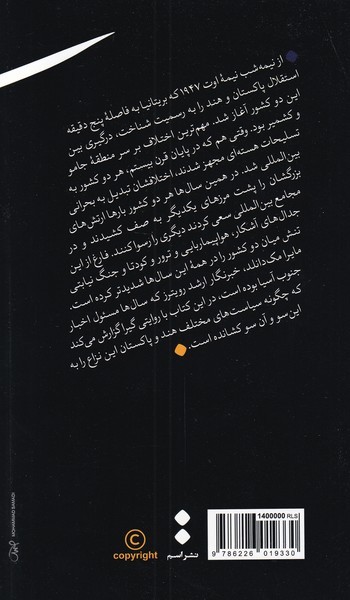 از نیمه‌شب نیمهٔ اوت ۱۹۴۷ که بریتانیا به فاصلهٔ پنج دقیقه
استقلال پاکستان و هند را به رسمیت شناخت، درگیری بین
این دو کشور آغاز شد. مهم‌ترین اختلاف بر سر منطقهٔ جامو
و کشمیر بود. وقتی هم که در پایان قرن بیستم، هر دو کشور به
تسلیحات هسته‌ای مجهز شدند، اختلافشان تبدیل به بحرانی
بین‌المللی شد. در همین سال‌ها هر دو کشور بارها ارتش‌های
بزرگشان را پشت مرزهای یکدیگر به صف کشیدند و در
مجامع بین‌المللی سعی کردند دیگری را رسوا کنند. فارغ از این
جدال‌های آشکار، هواپیماربایی و ترور و کودتا و جنگ نیابتی
تنش میان دو کشور را در همهٔ این سال‌ها شدیدتر کرده است.
مایرا مک‌دانلد، خبرنگار ارشد رویترز که سال‌ها مسئول اخبار
جنوب آسیا بوده است، در این کتاب با روایتی گیرا گزارش می‌کند
که چگونه سیاست‌های مختلف هند و پاکستان این نزاع را به
این سو و آن سو کشانده است.
MOHAMMAD SAMADI
© copyright
نشر اسم
1400000 RLS
9 786226 019330